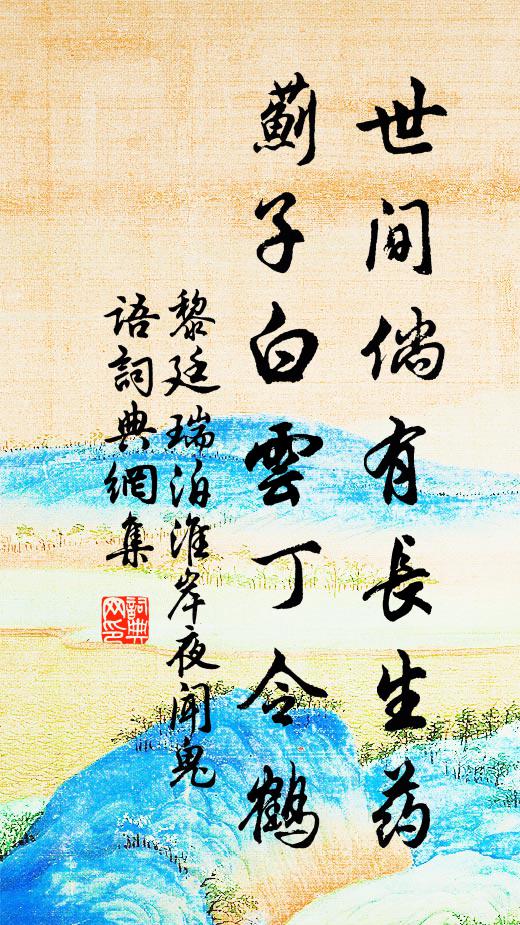 世间倘有長生药
薊子白雲丁令鶴
黎廷瑞泊淮岸夜聞鬼
語詞典網集
詞典网印